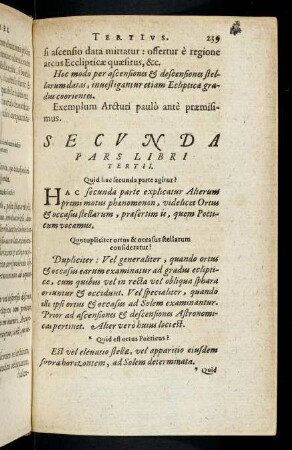 TERTIVS. 239
si ascensio data mittatur: offertur è regione
arcus Eclipticæ quæsitus, &c.
Hoc modo per ascensiones & descensiones stel-
larum datas, inuestigantur etiam Ecliptica gra-
dus coorientes.
Exemplum Arcturi paulò antè præmisi-
mus.
SECVNDA
PARS LIBRI
TERTII.
Quid hac secunda parte agitur?
HAC secunda parte explicatur Alterum
primi motus phenomenon, videlicet Ortus
& occasus stellarum, præsertim is, quem Poëti-
cum vocamus.
Quotupliciter ortus & occasus stellarum
consideratur?
Dupliciter: Vel generaliter, quando ortus
& occasus earum examinatur ad gradus eclipti-
cæ, cum quibus vel in recta vel obliqua sphæra
oriuntur & occidunt. Vel specialiter, quando
illi ipsi ortus & occasus ad Solem examinantur.
Prior ad ascensiones & descensiones Astronomi-
cas pertinet. Alter verò huius loci est.
* Quid est ortus Poëticus?
Est vel eleuatio stellæ, vel apparitio eiusdem
supra horizontem, ad Solem determinata.
* Quid